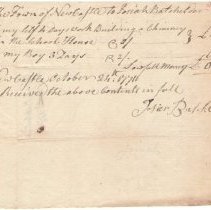 The Town of Newcastle to Josiah Batchelder
my self 4 days work Building a Chimney
in the School House @ 3/ £
my Boy 3 Days @ 2/ £ 0
Lawfull Money £
Newcastle October 24th 1771
Received the above Contents in full